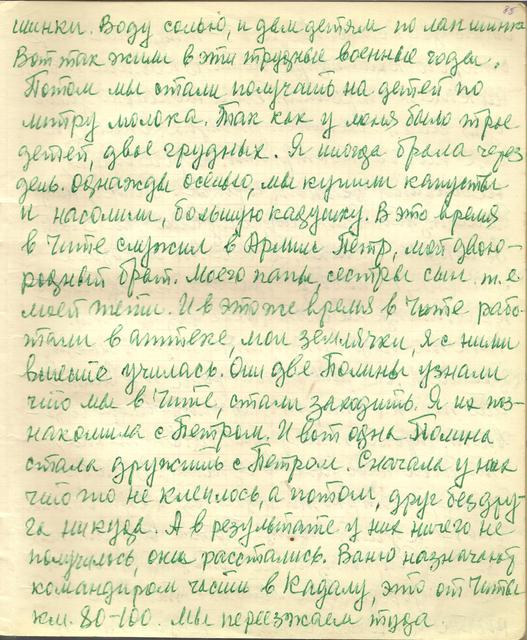 85
шинки. Воду солью, и дам детям по лапшинке
Вот так жили в эти трудные военные годы.
Потом мы стали получать на детей по
литру молока. Так как у меня было трое
детей, двое грудных. Я иногда брала через
день. Однажды осенью, мы купили капусты
и насолили, большую кадушку. В это время
в Чите служил в Армии Петр, мой двою-
родный брат. Моего папы, сестры сын т.е.
моей тёти. И в этоже время в Чите рабо-
тали в аптеке, мои землячки, я с ними
вместе училась. Они две Полины узнали
что мы в Чите, стали заходить. Я их поз-
накомила с Петром. И вот одна Полина
стала дружить с Петром. Сначала у них
что то не клеилось, а потом, друг без дру-
га никуда. А в результате у них ничего не
получилось, они расстались. Ваню назначают
командиром части в Кадалу, это от Читы
км. 80-100. Мы переезжаем туда.